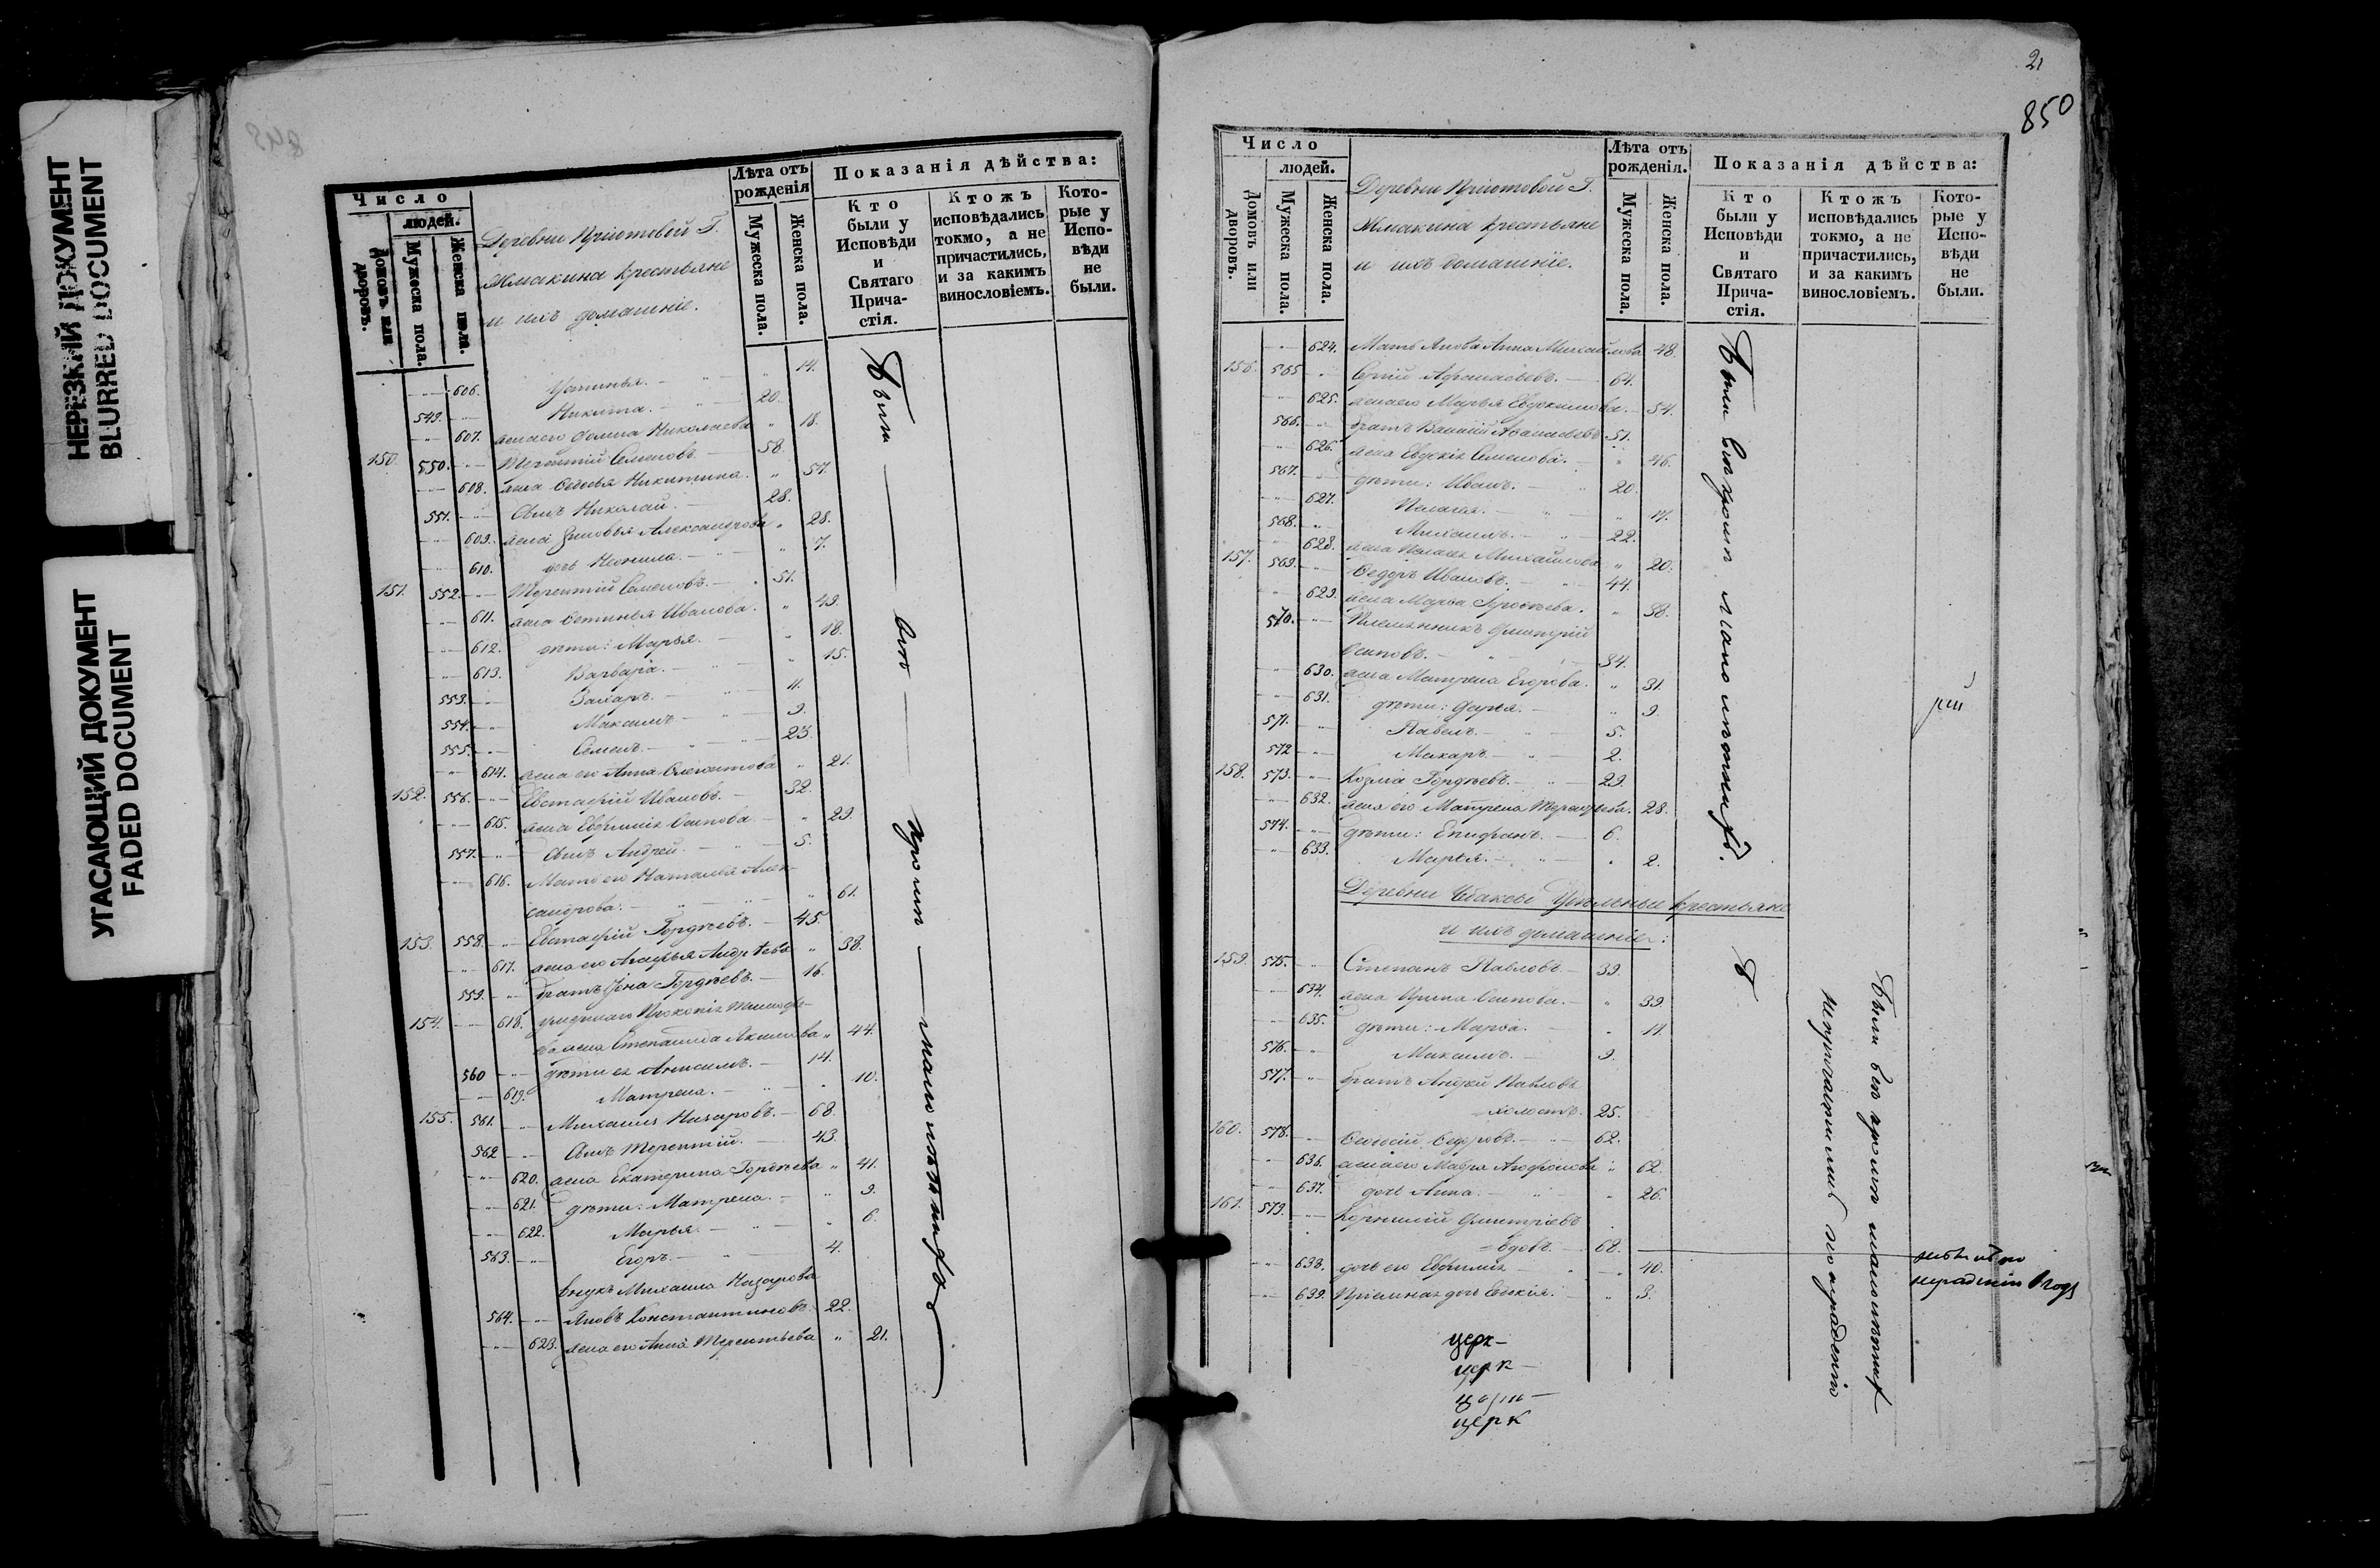 НЕРЕЗКИЙ ДОКУМЕНТ
BLURRED DOCUMENT
УГАСАЮЩИЙ ДОКУМЕНТ
FADED DOCUMENT
Число
людей.
Домовъ или дворовъ.
Мужеска пола.
Женска пола.
Деревни Приютовой Г.
Жмакина крестьяне
и ихъ домашніе.
Лѣта отъ рожденія
Мужеска пола.
Женска пола.
Показанія дѣйства:
Кто были у Исповѣди и Святаго Прича-стія.
Ктожъ исповѣдались токмо, а не причастились, и за какимъ винословіемъ.
Кото-рые у Испо-вѣди не были.
606. Устинья. 14.
549. Никита. 20.
607. жена его Николаева 18.
150. 550. Терентій Семеновъ. 58.
608. жена Федосья Никитина. 57.
551. Сынъ Николай. 28.
609. жена Зиновья Александрова 28.
610. дочь Неонила. 7.
151. 552. Терентій Семеновъ. 51.
611. жена Устинья Иванова. 49.
612. дѣти: Марья. 18.
613. Варвара. 15.
553. Захаръ. 11.
554. Максимъ 9.
555. Семенъ. 23.
614. жена его Анна 21.
152. 556. Евстафій Ивановъ. 32.
615. жена Евфимія Осипова 29.
557. Сынъ Андрей. 5.
616. Мать его Наталья Алек-
сандрова. 61.
153. 558. Евстафій Гордѣевъ. 45.
617. жена его Агафья Андрѣева 38.
559. братъ Іона Гордѣевъ. 16.
154. 618. умершаго Прокопія Тимофе-
ва жена Степанида Акимова 44.
560 дѣти ея Анисимъ. 14.
619. Матрена. 10.
155. 561. Михаилъ Назаровъ. 68.
562 Сынъ Терентій. 43.
620. жена Екатерина Гордѣева 41.
621. дѣти: Матрена. 9.
622. Марья. 6.
563. Егоръ. 4.
внукъ Михаила Назарова
564. Яковъ Константиновъ. 22.
623. жена его Анна Терентьева 21.
Были всѣ кромѣ малолѣтнихъ
21
850
Число
людей.
Домовъ или дворовъ.
Мужеска пола.
Женска пола.
Деревни Приютовой Г.
Жмакина крестьяне
и ихъ домашніе.
Лѣта отъ рожденія.
Мужеска пола.
Женска пола.
Показанія дѣйства:
Кто были у Исповѣди и Святаго Прича-стія.
Ктожъ исповѣдались токмо, а не причастились, и за какимъ винословіемъ.
Кото-рые у Испо-вѣди не были.
624. Мать Анна Михайлова 48.
156. 565 Сергій Афанасьевъ. 64.
625. жена его Марья Евдокимова. 54.
566. братъ Афанасьевъ 51.
626. жена Евдокія Семенова. 46.
567. дѣти: Иванъ. 20.
627. Пелагея. 17.
568. Михаилъ. 22.
628. жена Пелагея Михайлова 20.
157. 569. Федоръ Ивановъ. 44.
629. жена Марѳа 38.
570. Племянникъ Дмитрій
Осиповъ. 34.
630. жена Матрена Егорова. 31.
631. дѣти: Дарья. 9.
571. Павелъ. 5.
572 Макаръ. 2.
158. 573. Козма Гордѣевъ. 29.
632. жена его Матрена 28.
574. дѣти: Епифанъ. 6.
633. Марья. 2.
Были всѣ кромѣ малолѣтнихъ.
Деревни Удѣльные крестьяне
и ихъ домашніе:
159. 575. Степанъ Павловъ 39.
634. жена Ирина Осипова. 39.
635. дѣти: Марѳа. 11.
576. Максимъ. 9.
577. братъ Андрей Павловъ
холостъ. 25.
160. 578. Федоровъ. 62.
636. жена его Мавра 62.
637. дочь Анна. 26.
161. 579. Корнилій Дмитріевъ
вдовъ. 68.
638. дочь его Евфимія 40.
639. Пріемная дочь Евдокія. 3.
Были всѣ кромѣ малолѣтнихъ
по нерадѣнію
нерадѣнію
церк-
церк-
церк